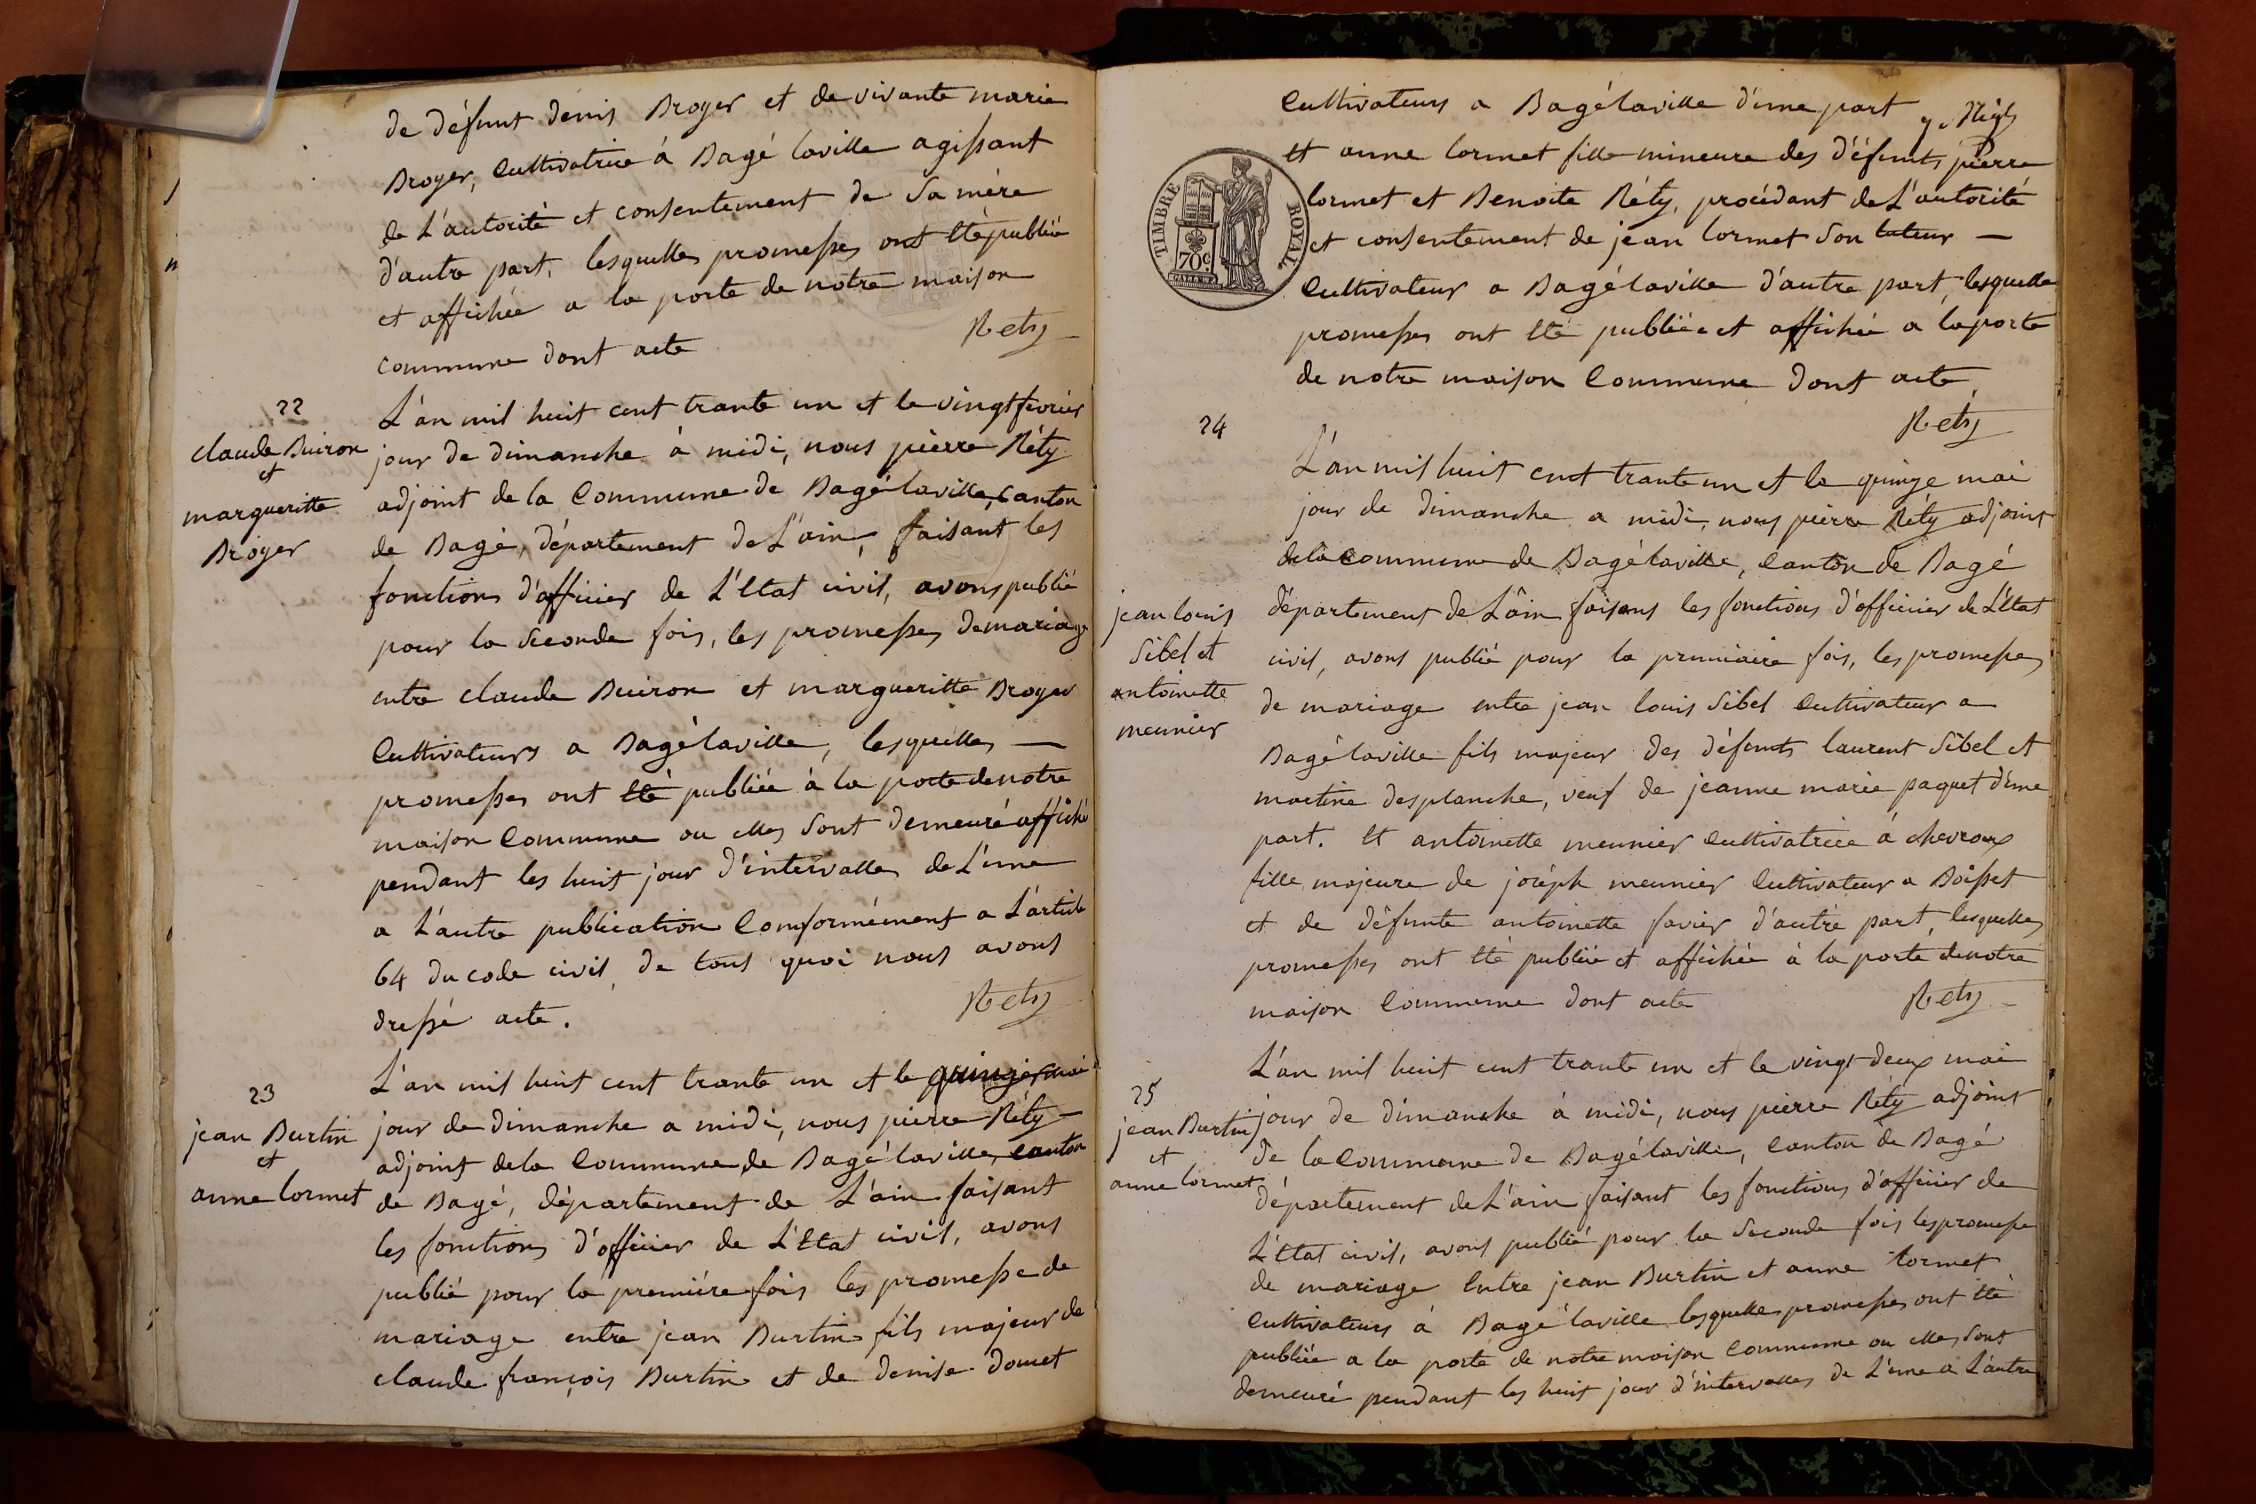 de défunt denis Broyer et de vivante marie
Broyer, Cultivatrice à Bagé laville agissant
de L'autorité et consentement de Sa mère
d'autre part, lesquelles promesses ont été publiée
et affichée a la porte de notre maison
commune dont acte
Rety
22
claude Buiron
et
margueritte
Broyer
L'an mil huit cent trante un et le vingt fevrier
jour de dimanche à midi, nous pierre Réty
adjoint de la Commune de Bagé laville, Canton
de Bagé, département de L'ain, faisant les
fonctions d'officier de L'Etat civil, avons publié
pour la Seconde fois, les promesses de mariage
entre claude Buiron et margueritte Broyer
Cultivateurs a Bagé laville, lesquelles —
promesses ont été publiée à la porte de notre
maison Commune ou elles Sont demeuré affiché
pendant les huit jour d'intervalles de L'une
a L'autre publication Comformément a L'article
64 du code civil, de tous quoi nous avons
dressé acte.
Rety
23
jean Burtin
et
anne lormet
L'an mil huit cent trante un et le quinze mai
jour de dimanche a midi, nous pierre Réty
adjoint de la Commune de Bagé laville, canton
de Bagé, département de L'ain faisant
les fonctions d'officier de L'Etat civil, avons
publié pour la premiére fois les promesse de
mariage entre jean Burtin fils majeur de
claude françois Burtin et de denise domet
Cultivateurs a Bagé laville d'une part
et anne lormet fille mineure des défunts pierre
lormet et Benoite Réty, procédant de L'autorité
et consentement de jean lormet Son tuteur —
Cultivateur a Bagé laville d'autre part, lesquelle
promesses ont été publiée et affichée a la porte
de notre maison Commune dont acte
Rety
TIMBRE ROYAL
70c
24
jean louis
Sibel et
antoinette
meunier
L'an mil huit cent trante un et le quinze mai
jour de dimanche a midi, nous pierre Réty adjoint
de la Commune de Bagé laville, Canton de Bagé
département de L'ain faisans les fonctions d'officier de L'Etat
civil, avons publié pour la prumiaire fois, les promesses
de mariage entre jean louis Sibel Cultivateur a
Bagé laville fils majeur des défunts laurent Sibel et
martine desplanche, veuf de jeanne marie paquet d'une
part. Et antoinette meunier Cultivatrice à chevroux
fille majeure de joséph meunier Cultivateur a Boisset
et de défunte antoinette favier d'autre part, lesquelles
promesses ont été publiée et affichée à la porte de notre
maison Commune dont acte
Rety
25
jean Burtin
et
anne lormet
L'an mil huit cent trante un et le vingt deux mai
jour de dimanche à midi, nous pierre Réty adjoint
de la Commune de Bagé laville, Canton de Bagé
département de L'ain faisant les fonctions d'officier de
L'Etat civil, avons publié pour la Seconde fois les promesse
de mariage Entre jean Burtin et anne lormet
Cultivateurs à Bagé laville lesquelles promesses ont été
publiée a la porte de notre maison Commune ou elles Sont
demeuré pendant les huit jour d'intervalles de L'une a L'autre